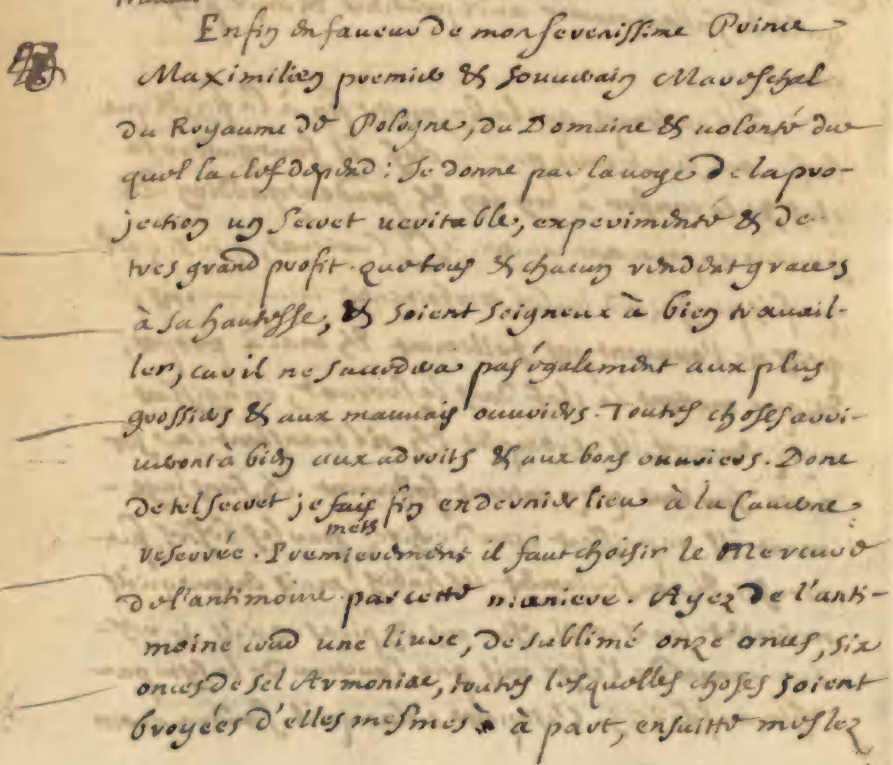 Enfin en faveur de mon serenissime Prince
Maximilien premier & souverain Mareschal
du Royaume de Pologne, du Domaine & volonté du
quel la clef depend: Je donne par la voye de la pro-
jection un secret veritable, experimenté & de
tres grand profit. que tous & chacun rendent graces
à sa hautesse, & soient soigneux à bien travail-
ler, car il ne succedera pas également aux plus
grossiers & aux mauvais ouvriers. Toutes choses arri-
veront à bien aux adroits & aux bons ouvriers. Donc
de tel secret je fais fin en dernier lieu à la Caverne
mets
reservée. Premierement il faut choisir le Mercure
de l'antimoine par cette maniere. Ayez de l'anti-
moine crud une livre, de sublimé onze onces, six
onces de sel Armoniac, toutes lesquelles choses soient
broyées d'elles mesmes à part, ensuitte meslez